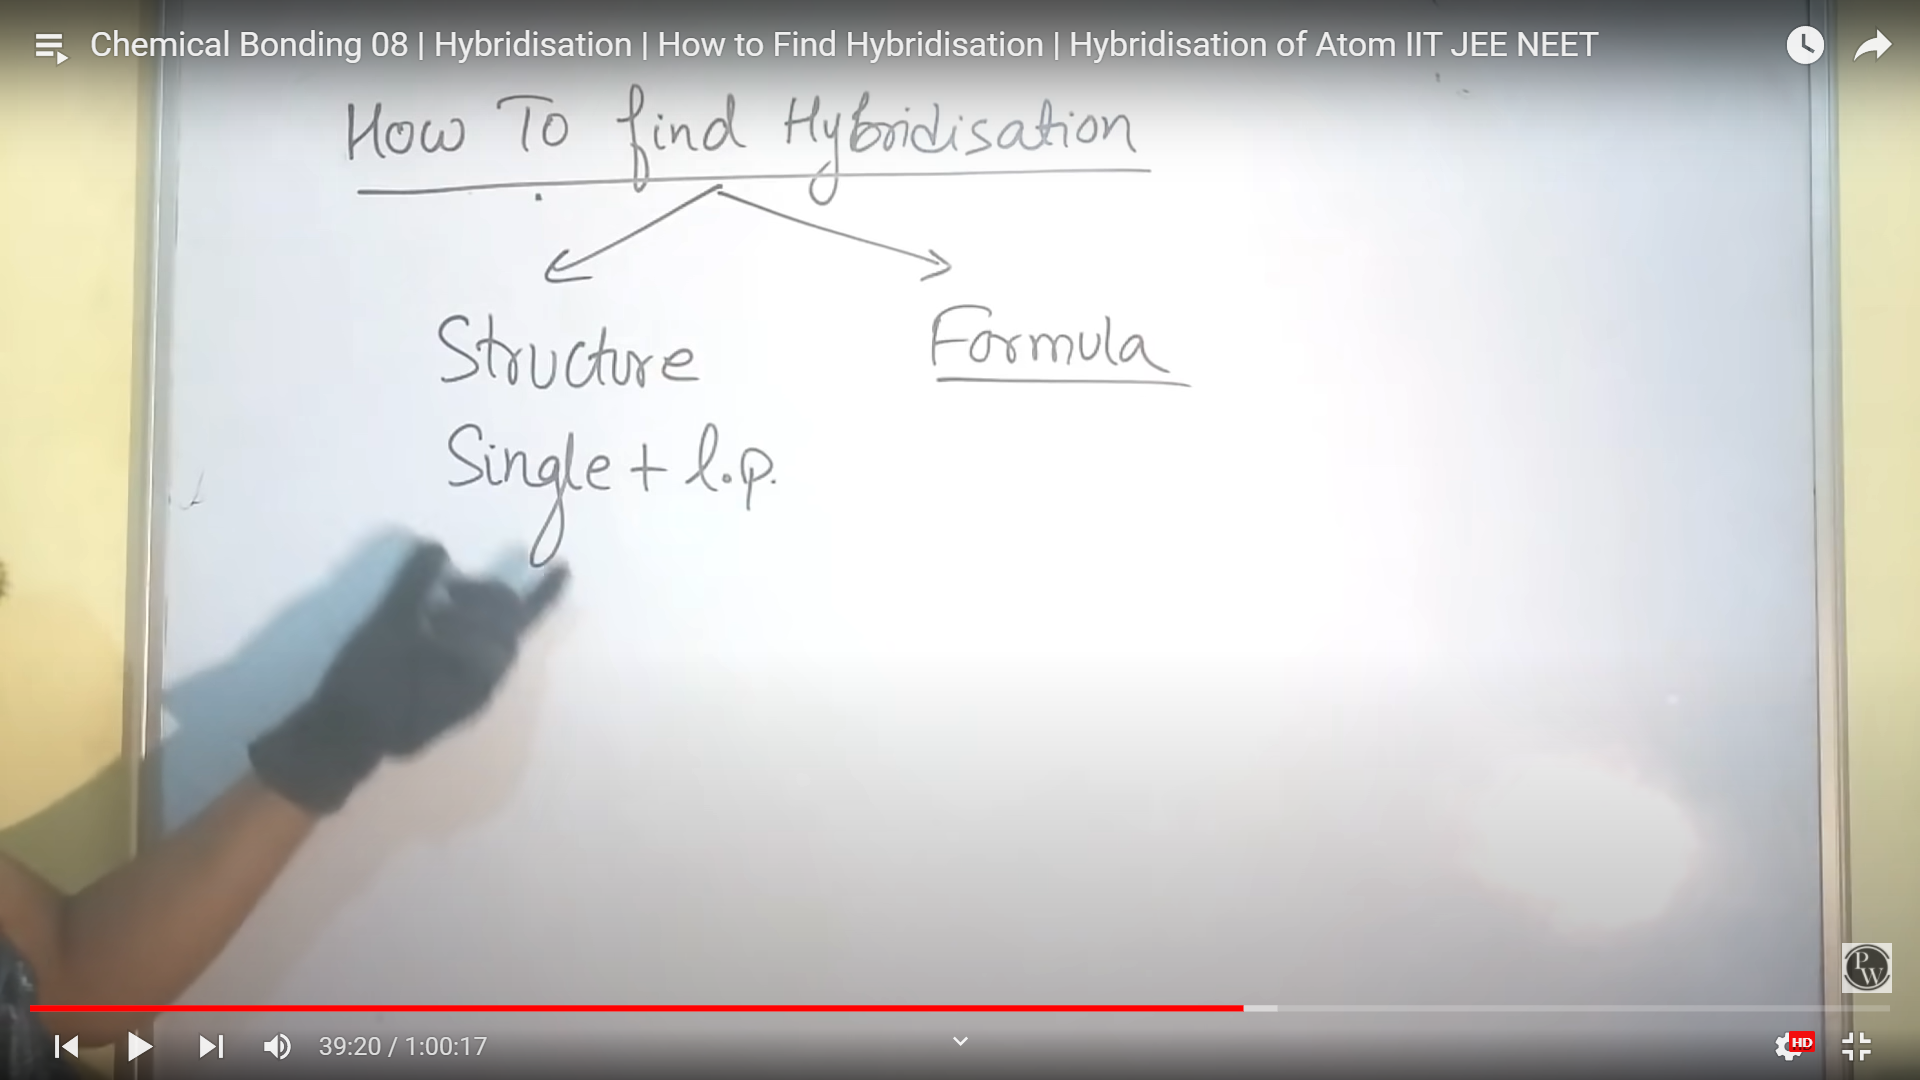 Chemical Bonding 08 | Hybridisation | How to Find Hybridisation | Hybridisation of Atom IIT JEE NEET
How To find Hybridisation
Structure
Formula
Single + l.p.
PW
39:20 / 1:00:17
HD